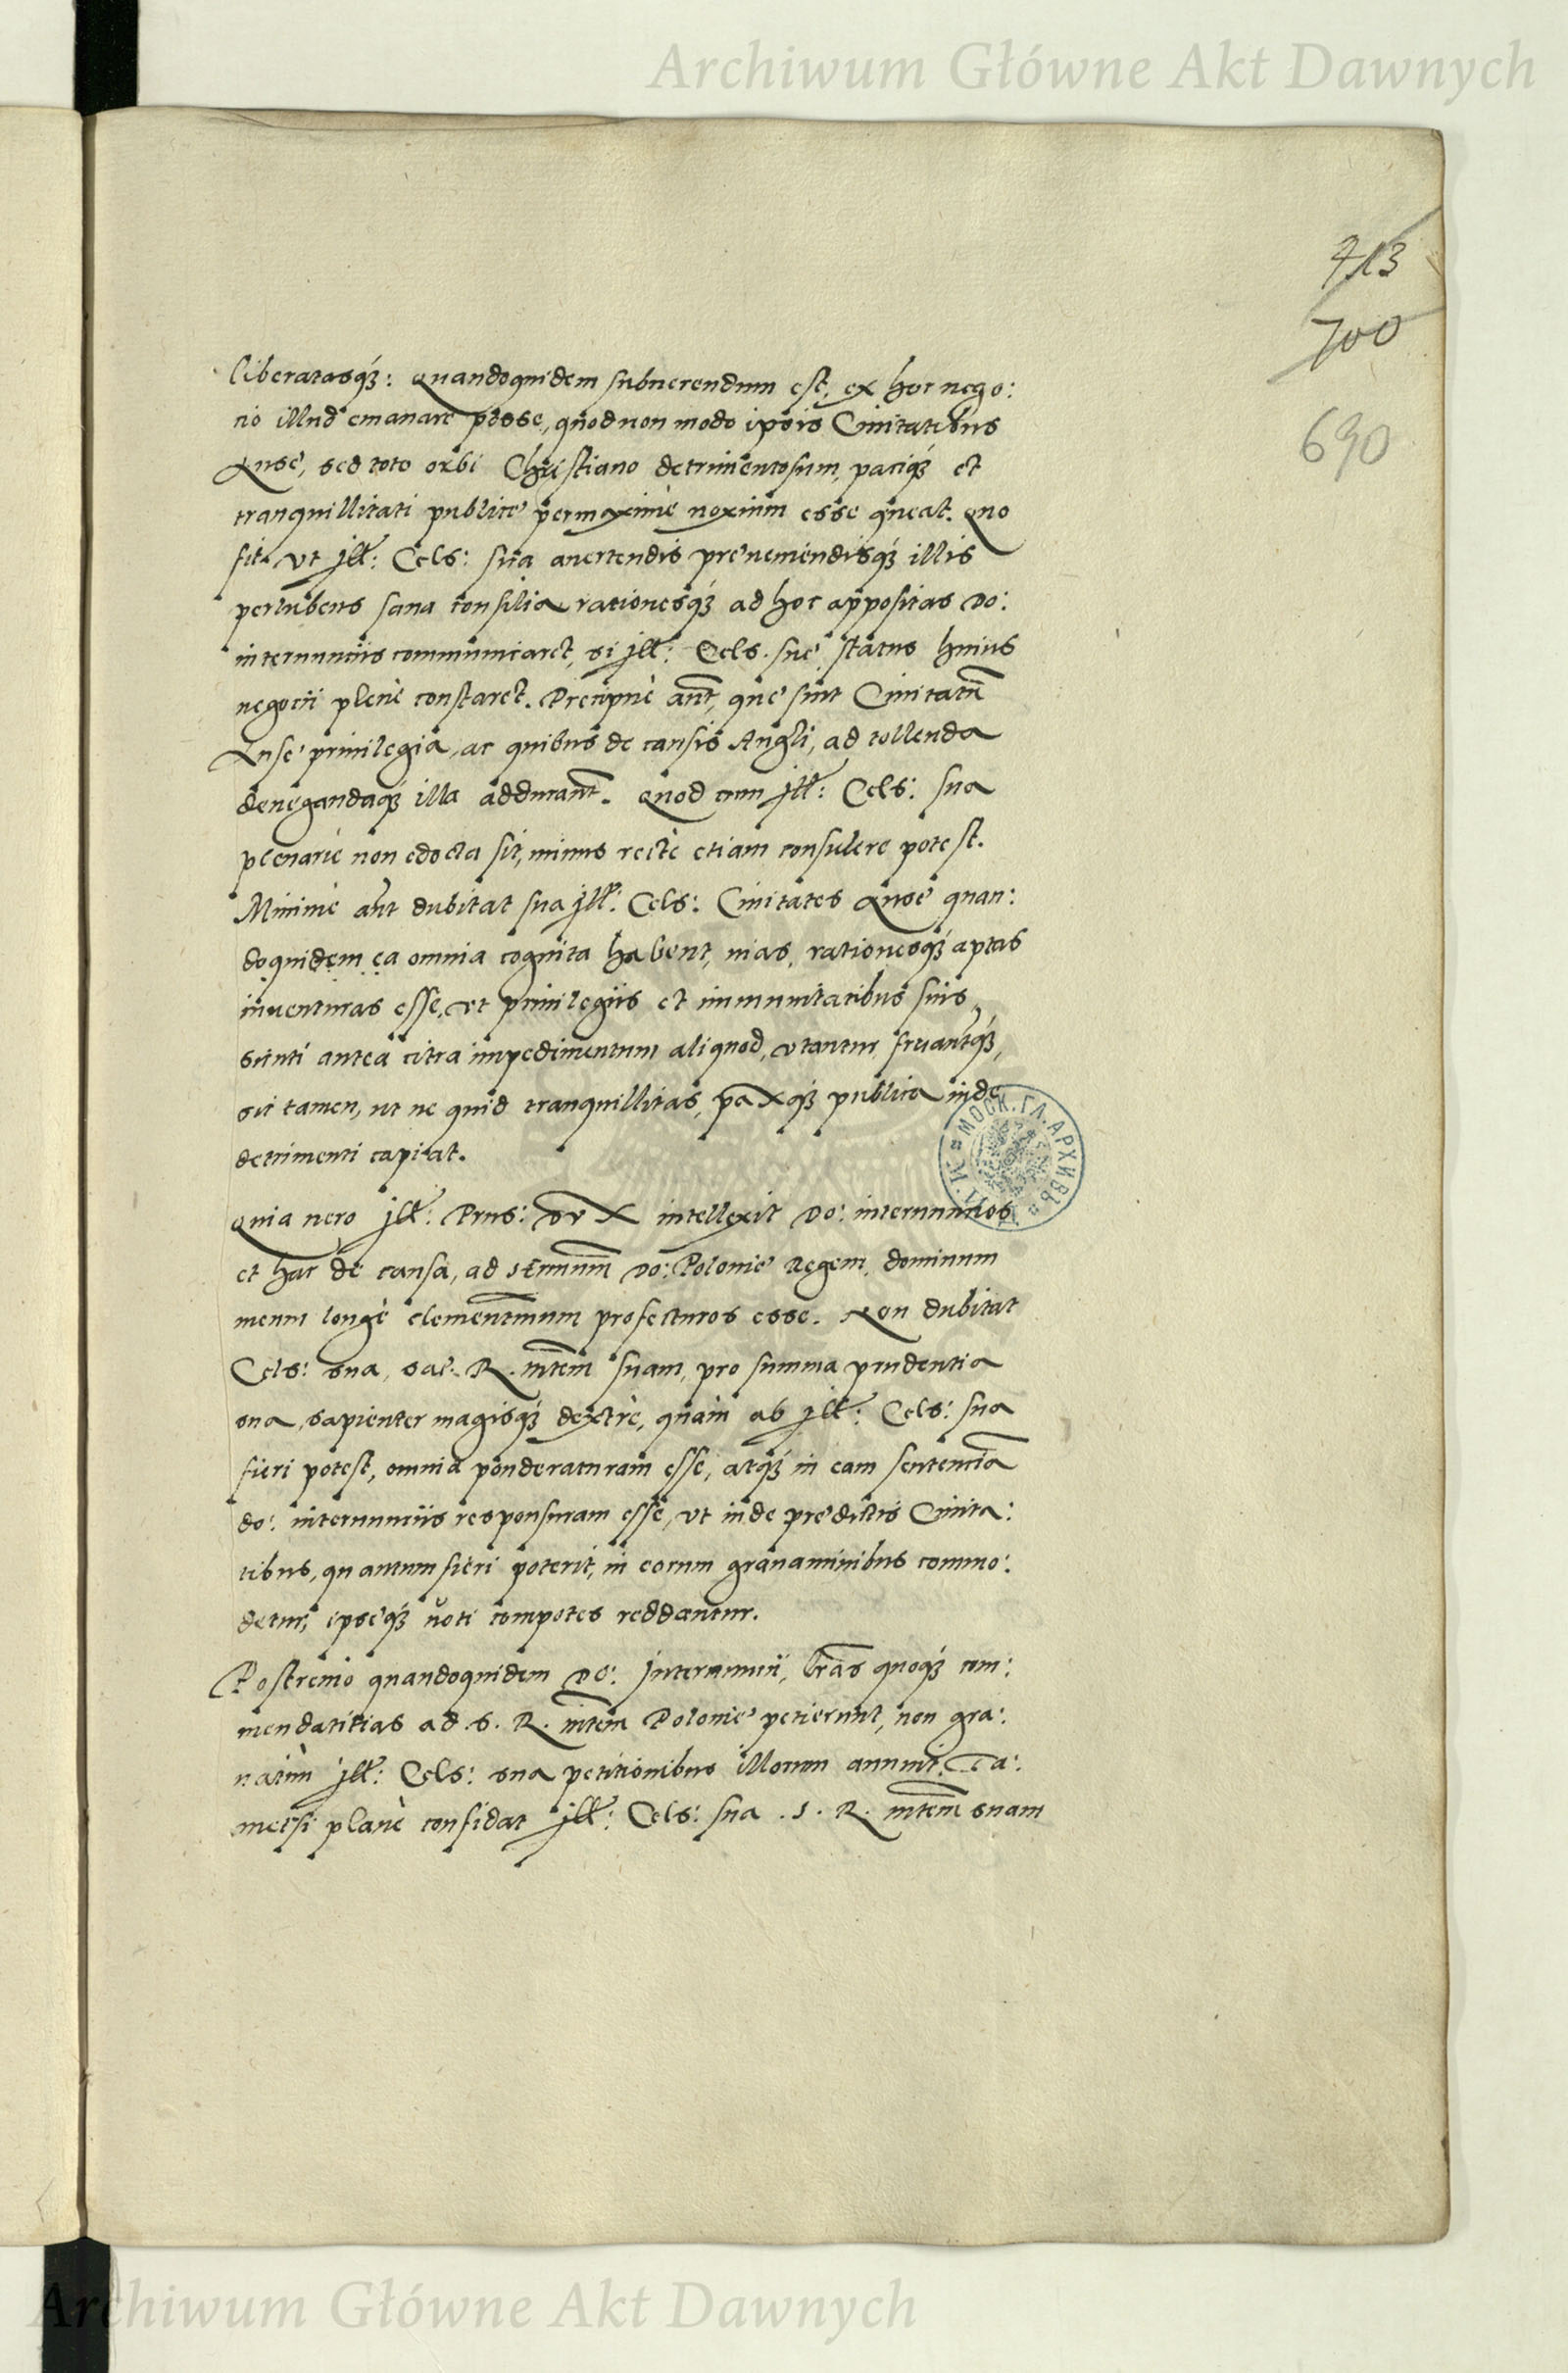 Archiwum Główne Akt Dawnych
713
700
690
liberatasq́ꝫ: Quandoquidem subuerendum est, ex hoc nego:
cio illud emanare posse, quod non modo ipsis Ciuitatibus
Anse, sed toto orbi Christiano detrimentosum, paciq́ꝫ et
tranquillitati publice permaxime noxium esse queat. Quo
fit, vt jll: Cels: sua auertendis preueniendisq́ꝫ illis
perlubens sana consilia rationesq́ꝫ ad hoc appositas Do:
internunciis communicaret, si jll: Cels. sue status huius
negocii plenè constaret. Precipuè aūt, que sint Ciuitatū
Anse priuilegia, ac quibus de causis Angli, ad tollenda
denegandaq́ꝫ illa adducant. Quod cum jll: Cels: sua
plenarie non edocta sit, minus rectè etiam consulere potest.
Minimè aūt dubitat sua jll: Cels: Ciuitates Anse quan:
doquidem ea omnia cognita habent, uias, rationesq́ꝫ aptas
inuenturas esse, vt priuilegiis et immunitatibus suis,
sicuti antea citra impedimentum aliquod, vtantur fruantq́ꝫ,
sic tamen, ut ne quid tranquillitas, paxq́ꝫ publica inde
detrimenti capiat.
Quia uero jll: Prus: dux intellexit Do: internuncios
et hac de causa, ad sermum Do: Polonie Regem, dominum
meum longè clementmum profecturos esse. Non dubitat
Cels: sua, sac: R. mtem suam, pro summa prudentia
sua, sapienter magisq́ꝫ dextrè, quàm ab jll: Cels: sua
fieri potest, omnia ponderaturam esse, atq́ꝫ in eam sentencia
do: internunciis responsuram esse, vt inde predictis Ciuita:
tibus, quantum fieri poterit, in eorum grauaminibus commo:
detur, ipseq́ꝫ uoti compotes reddantur.
Postremo quandoquidem Do: Internuncii, lras quoq́ꝫ com:
mendatitias ad S. R. mtem Polonie petierunt, non gra:
uatim jll: Cels: sua petitionibus illorum annuit. Ta:
metsi planè confidat jll: Cels: sua .S. R. mtem suam
МОСК. ГЛ. АРХИВЪ М. И. Д.
Archiwum Główne Akt Dawnych